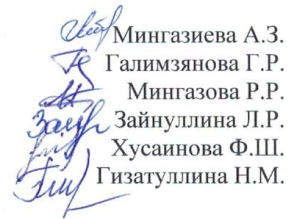 Мингазиева А.З.
Галимзянова Г.Р.
Мингазова Р.Р.
Зайнуллина Л.Р.
Хусаинова Ф.Ш.
Гизатуллина Н.М.